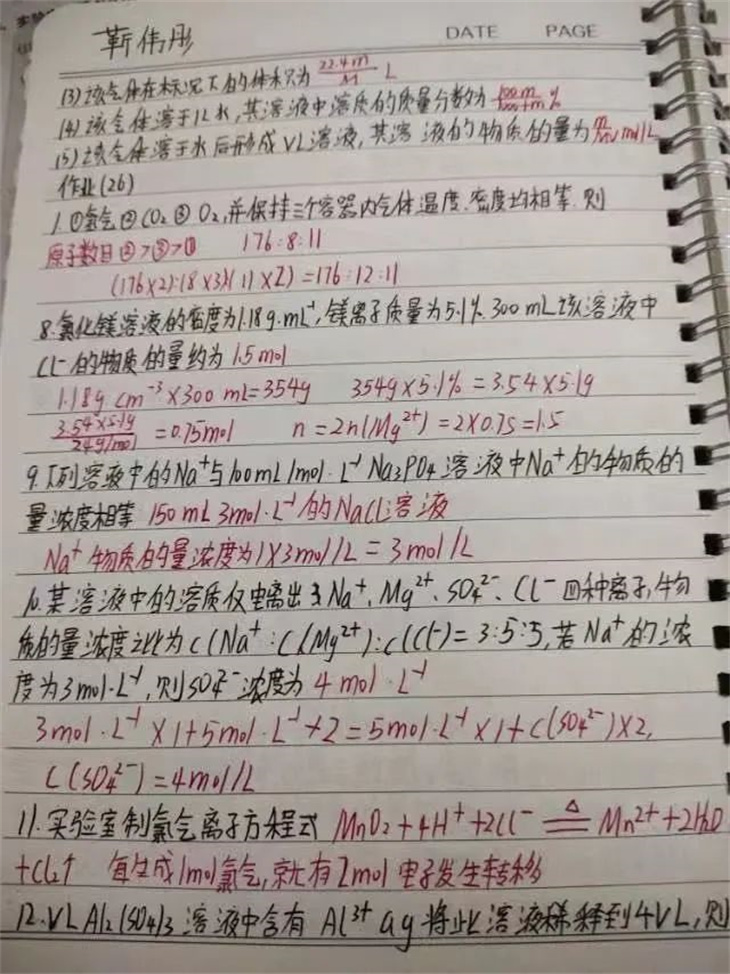 靳伟彤
DATE PAGE
(3)该气体在标况下的体积为 22.4m/M L
(4)该气体溶于1L水,其溶液中溶质的质量分数为 100m/1000+m %
(5)该气体溶于水后形成VL溶液,其溶液的物质的量为 mol/L
作业(26)
1.①氢气②CO₂③O₂,并保持三个容器内气体温度.密度均相等.则
原子数目②>③>① 176:8:11
(176×2):(8×3)(11×2)=176:12:11
8.氯化镁溶液的密度为1.18g·mL⁻¹,镁离子质量为5.1%.300mL该溶液中
Cl⁻的物质的量约为1.5mol
1.18g.cm⁻³×300mL=354g 354g×5.1%=3.54×5.1g
3.54×5.1g/24g/mol=0.75mol n=2n(Mg²⁺)=2×0.75=1.5
9.下列溶液中的Na⁺与100mL1mol·L⁻¹Na₃PO₄溶液中Na⁺的物质的
量浓度相等 150mL3mol·L⁻¹的NaCl溶液
Na⁺物质的量浓度为1×3mol/L=3mol/L
10.某溶液中的溶质仅电离出Na⁺、Mg²⁺、SO₄²⁻、Cl⁻四种离子,物
质的量浓度之比为c(Na⁺:C(Mg²⁺):c(Cl⁻)=3:5:5,若Na⁺的浓
度为3mol·L⁻¹,则SO₄²⁻浓度为4mol·L⁻¹
3mol·L⁻¹×1+5mol·L⁻¹×2=5mol·L⁻¹×1+C(SO₄²⁻)×2,
C(SO₄²⁻)=4mol/L
11.实验室制氯气离子方程式 MnO₂+4H⁺+2Cl⁻ =△= Mn²⁺+2H₂O
+Cl₂↑ 每生成1mol氯气,就有2mol电子发生转移
12.VLAl₂(SO₄)₃溶液中含有Al³⁺ag将此溶液稀释到4VL,则